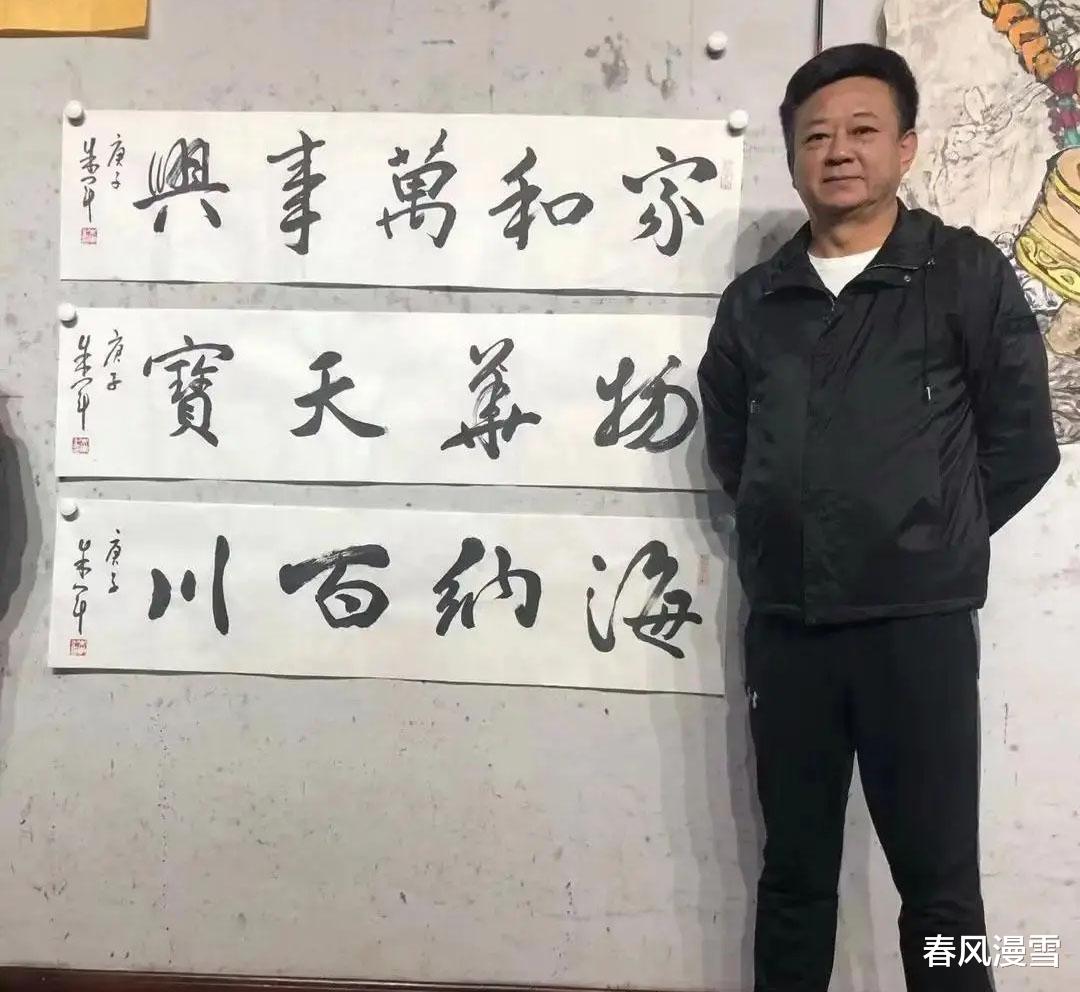 家和萬事興
庚子
朱军
物華天寶
庚子
朱军
海納百川
庚子
朱军
春风漫雪